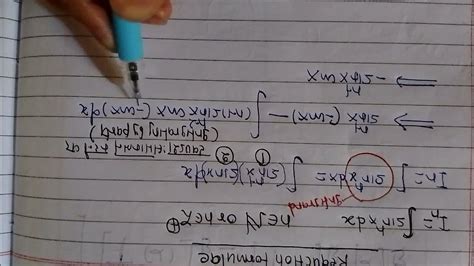 Reduction Formulae
Iₙ = ∫ sinⁿx dx
Integrand
Iₙ = ∫ sinⁿx dx = ∫ (sinⁿ⁻¹x)(sinx)dx
① ②
(integrating by parts)
⟹ sinⁿ⁻¹x (-cosx) - ∫ (n-1) sinⁿ⁻²x cosx (-cosx) dx
⟹ - sinⁿ⁻¹x cosx